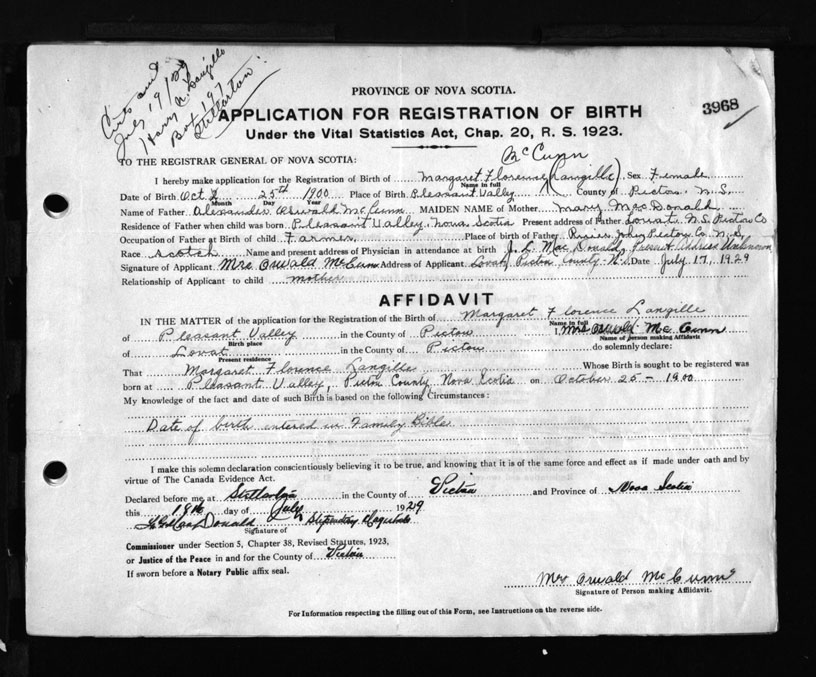 Cert sent
July 19/29
Harry A. Langille
Box 197
Stellarton
3968
PROVINCE OF NOVA SCOTIA.
APPLICATION FOR REGISTRATION OF BIRTH
Under the Vital Statistics Act, Chap. 20, R. S. 1923.
TO THE REGISTRAR GENERAL OF NOVA SCOTIA:
McCunn
I hereby make application for the Registration of Birth of Margaret Florence (Langille) Sex Female
Name in full
Date of Birth Oct 25th 1900 Place of Birth Pleasant Valley County of Pictou N.S.
Month Day Year
Name of Father Alexander Oswald McCunn MAIDEN NAME of Mother Mary MacDonald
Residence of Father when child was born Pleasant Valley, Nova Scotia Present address of Father Lovat N.S. Pictou Co
Occupation of Father at Birth of child Farmer Place of birth of Father River John Pictou Co. N.S.
Race Scotch Name and present address of Physician in attendance at birth J. L. MacDonald, Present Address Unknown
Signature of Applicant Mrs Oswald McCunn Address of Applicant Lovat, Pictou County N.S. Date July 17, 1929
Relationship of Applicant to child mother
AFFIDAVIT
IN THE MATTER of the application for the Registration of the Birth of Margaret Florence Langille
Name in full
of Pleasant Valley in the County of Pictou I, Mrs Oswald McCunn
Birth place Name of person making Affidavit
of Lovat in the County of Pictou do solemnly declare:
Present residence
That Margaret Florence Langille Whose Birth is sought to be registered was
born at Pleasant Valley, Pictou County, Nova Scotia on October 25 - 1900
My knowledge of the fact and date of such Birth is based on the following Circumstances:
Date of birth entered in Family Bible
I make this solemn declaration conscientiously believing it to be true, and knowing that it is of the same force and effect as if made under oath and by
virtue of The Canada Evidence Act.
Declared before me at Stellarton in the County of Pictou and Province of Nova Scotia
this 19th day of July 1929
MacDonald Stipendiary Magistrate
Signature of
Commissioner under Section 5, Chapter 38, Revised Statutes, 1923,
or Justice of the Peace in and for the County of Pictou
If sworn before a Notary Public affix seal.
Mrs Oswald McCunn
Signature of Person making Affidavit.
For Information respecting the filling out of this Form, see Instructions on the reverse side.